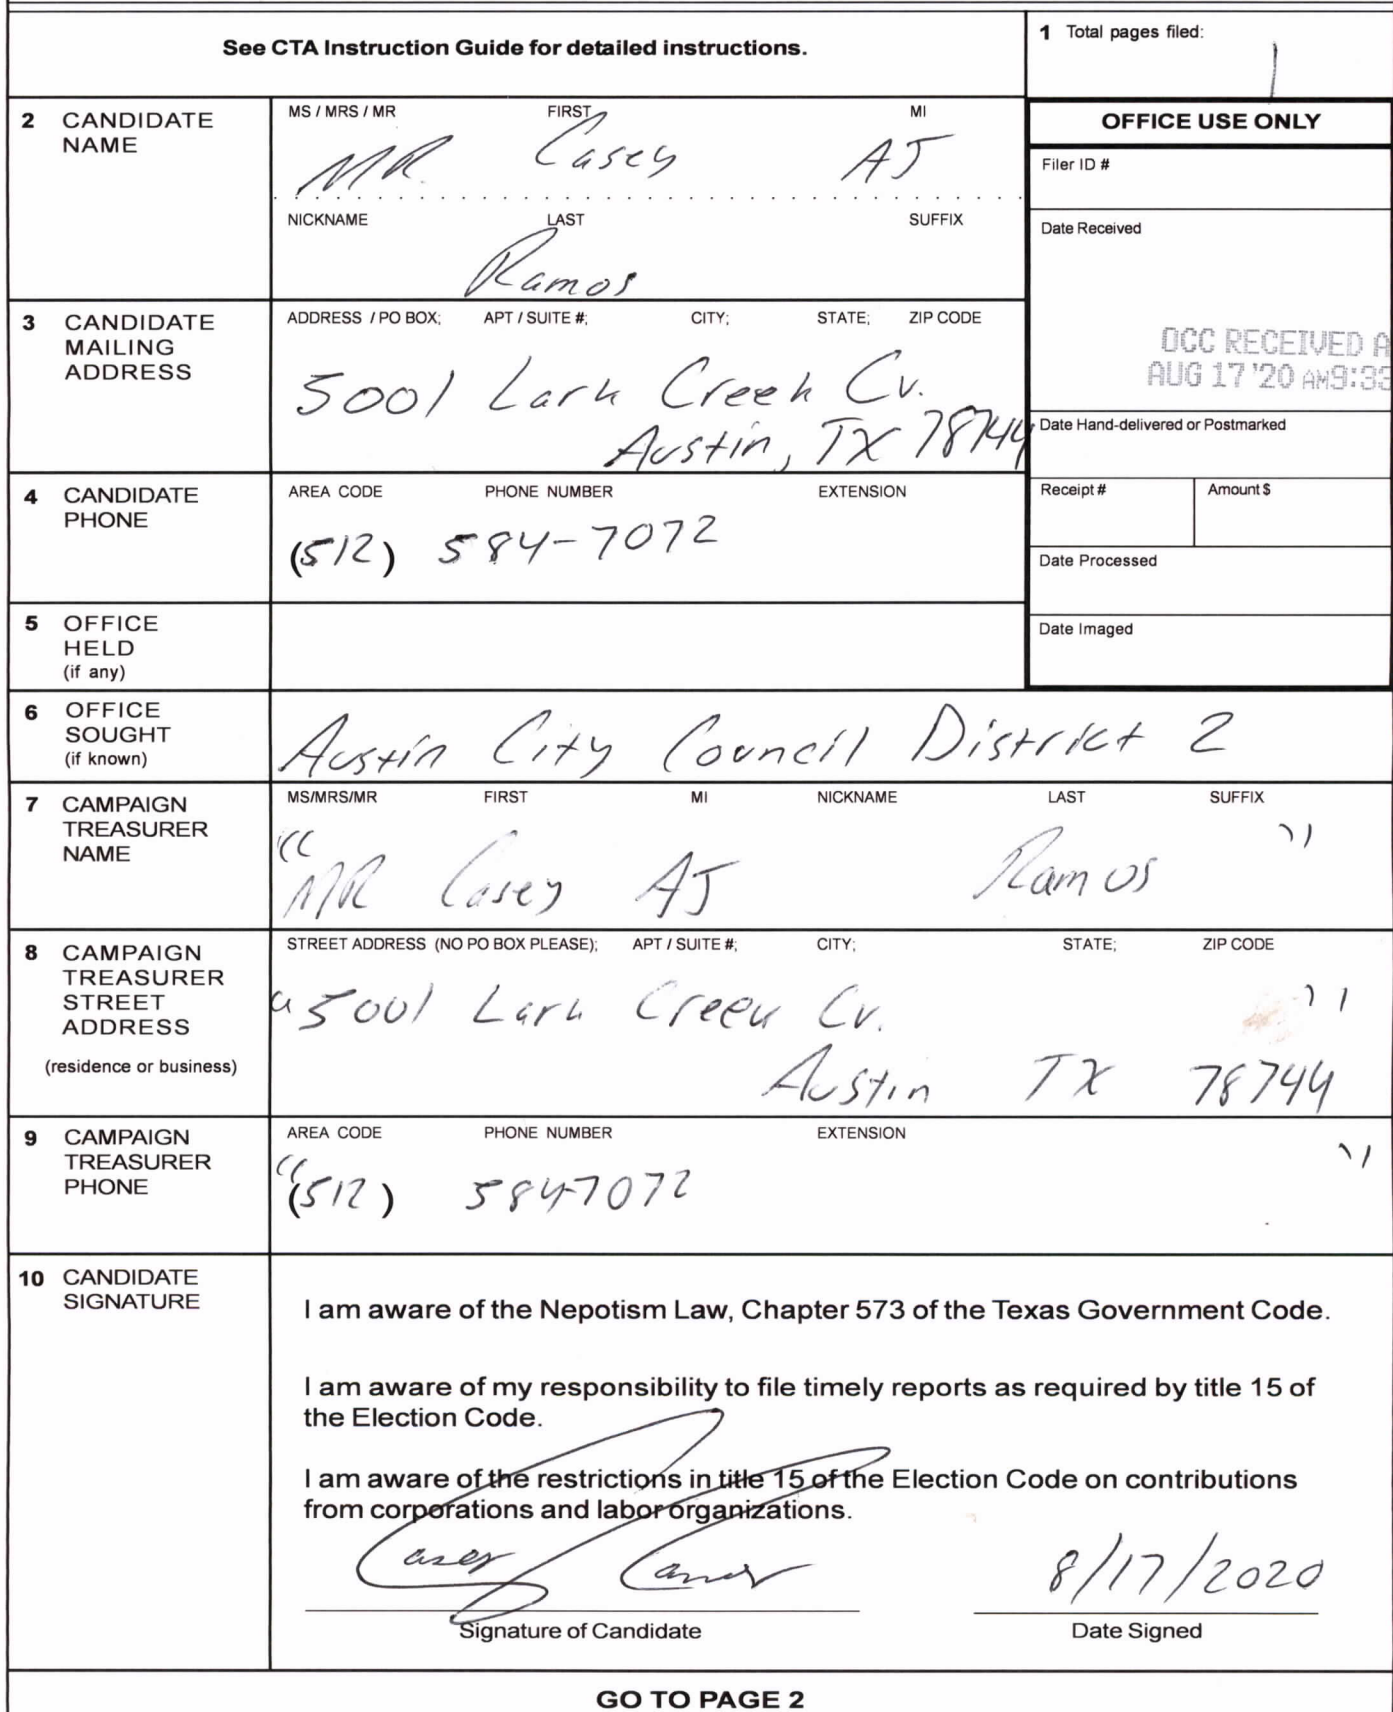 See CTA Instruction Guide for detailed instructions.
1 Total pages filed:
1
2 CANDIDATE NAME
MS / MRS / MR FIRST MI
MR. Casey AJ
NICKNAME LAST SUFFIX
Ramos
OFFICE USE ONLY
Filer ID #
Date Received
OCC RECEIVED A
AUG 17 '20 AM9:33
Date Hand-delivered or Postmarked
Receipt # Amount $
Date Processed
Date Imaged
3 CANDIDATE MAILING ADDRESS
ADDRESS / PO BOX; APT / SUITE #; CITY; STATE; ZIP CODE
5001 Lark Creek Cv.
Austin, TX 78744
4 CANDIDATE PHONE
AREA CODE PHONE NUMBER EXTENSION
(512) 584-7072
5 OFFICE HELD (if any)
6 OFFICE SOUGHT (if known)
Austin City Council District 2
7 CAMPAIGN TREASURER NAME
MS/MRS/MR FIRST MI NICKNAME LAST SUFFIX
"MR Casey AJ Ramos "
8 CAMPAIGN TREASURER STREET ADDRESS (residence or business)
STREET ADDRESS (NO PO BOX PLEASE); APT / SUITE #; CITY; STATE; ZIP CODE
"5001 Lark Creek Cv. "
Austin TX 78744
9 CAMPAIGN TREASURER PHONE
AREA CODE PHONE NUMBER EXTENSION
"(512) 584-7072 "
10 CANDIDATE SIGNATURE
I am aware of the Nepotism Law, Chapter 573 of the Texas Government Code.
I am aware of my responsibility to file timely reports as required by title 15 of
the Election Code.
I am aware of the restrictions in title 15 of the Election Code on contributions
from corporations and labor organizations.
Casey Ramos 8/17/2020
Signature of Candidate Date Signed
GO TO PAGE 2